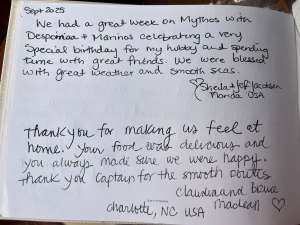 Sept 2025
We had a great week on Mythos with
Despoinaa + Marinos celebrating a very
Special birthday for my hubby and spending
time with great friends. We were blessed
with great weather and smooth seas.
Sheila + Jeff Jacobsen
Florida USA
Thank you for making us feel at
home. Your food was delicious and
you always made sure we were happy.
Thank you Captain for the smooth
Claudia and
charlotte, NC USA